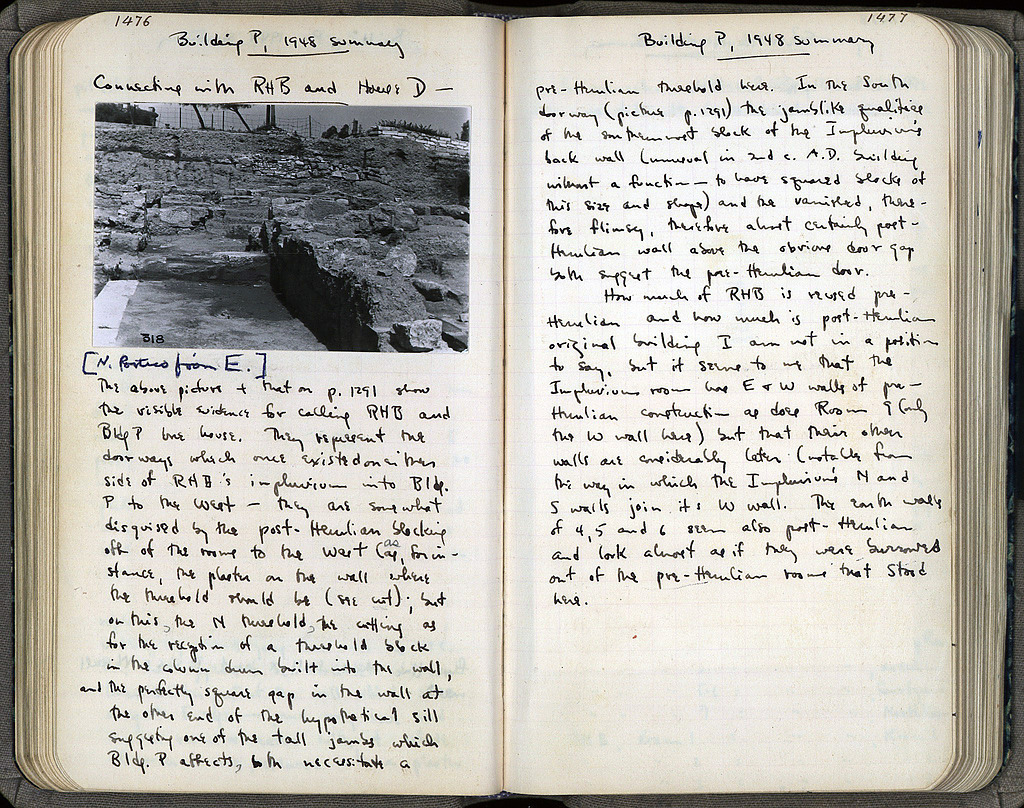 1476
Building P, 1948 summary
Connecting with RHB and House D —
318
[N. Portico from E.]
The above picture + that on p. 1291 show
the visible evidence for calling RHB and
Bldg P one house. They represent the
doorways which once existed on either
side of RHB's impluvium into Bldg.
P to the West — they are somewhat
disguised by the post-Herulian blocking
off of the rooms to the West (as, for in-
stance, the plaster on the wall where
the threshold should be (see cut); but
on this, the N threshold, the cutting as
for the reception of a threshold block
in the column drum built into the wall,
and the perfectly square gap in the wall at
the other end of the hypothetical sill
suggesting one of the tall jambs which
Bldg. P affects, both necessitate a
1477
Building P, 1948 summary
pre-Herulian threshold here. In the South
doorway (picture p. 1291) the jamblike qualities
of the southernmost block of the Impluvium's
back wall (unusual in 2nd c. A.D. building
without a function — to have squared blocks of
this size and shape) and the vanished, there-
fore flimsy, therefore almost certainly post-
Herulian wall above the obvious door gap
both suggest the pre-Herulian door.
How much of RHB is reused pre-
Herulian and how much is post-Herulian
original building I am not in a position
to say, but it seems to me that the
Impluvium room has E + W walls of pre-
Herulian construction as does Room 9 (only
the W wall here) but that their other
walls are considerably later (notable from
the way in which the Impluvium's N and
S walls join its W wall. The earth walls
of 4, 5 and 6 seem also post-Herulian
and look almost as if they were burrowed
out of the pre-Herulian rooms that stood
here.